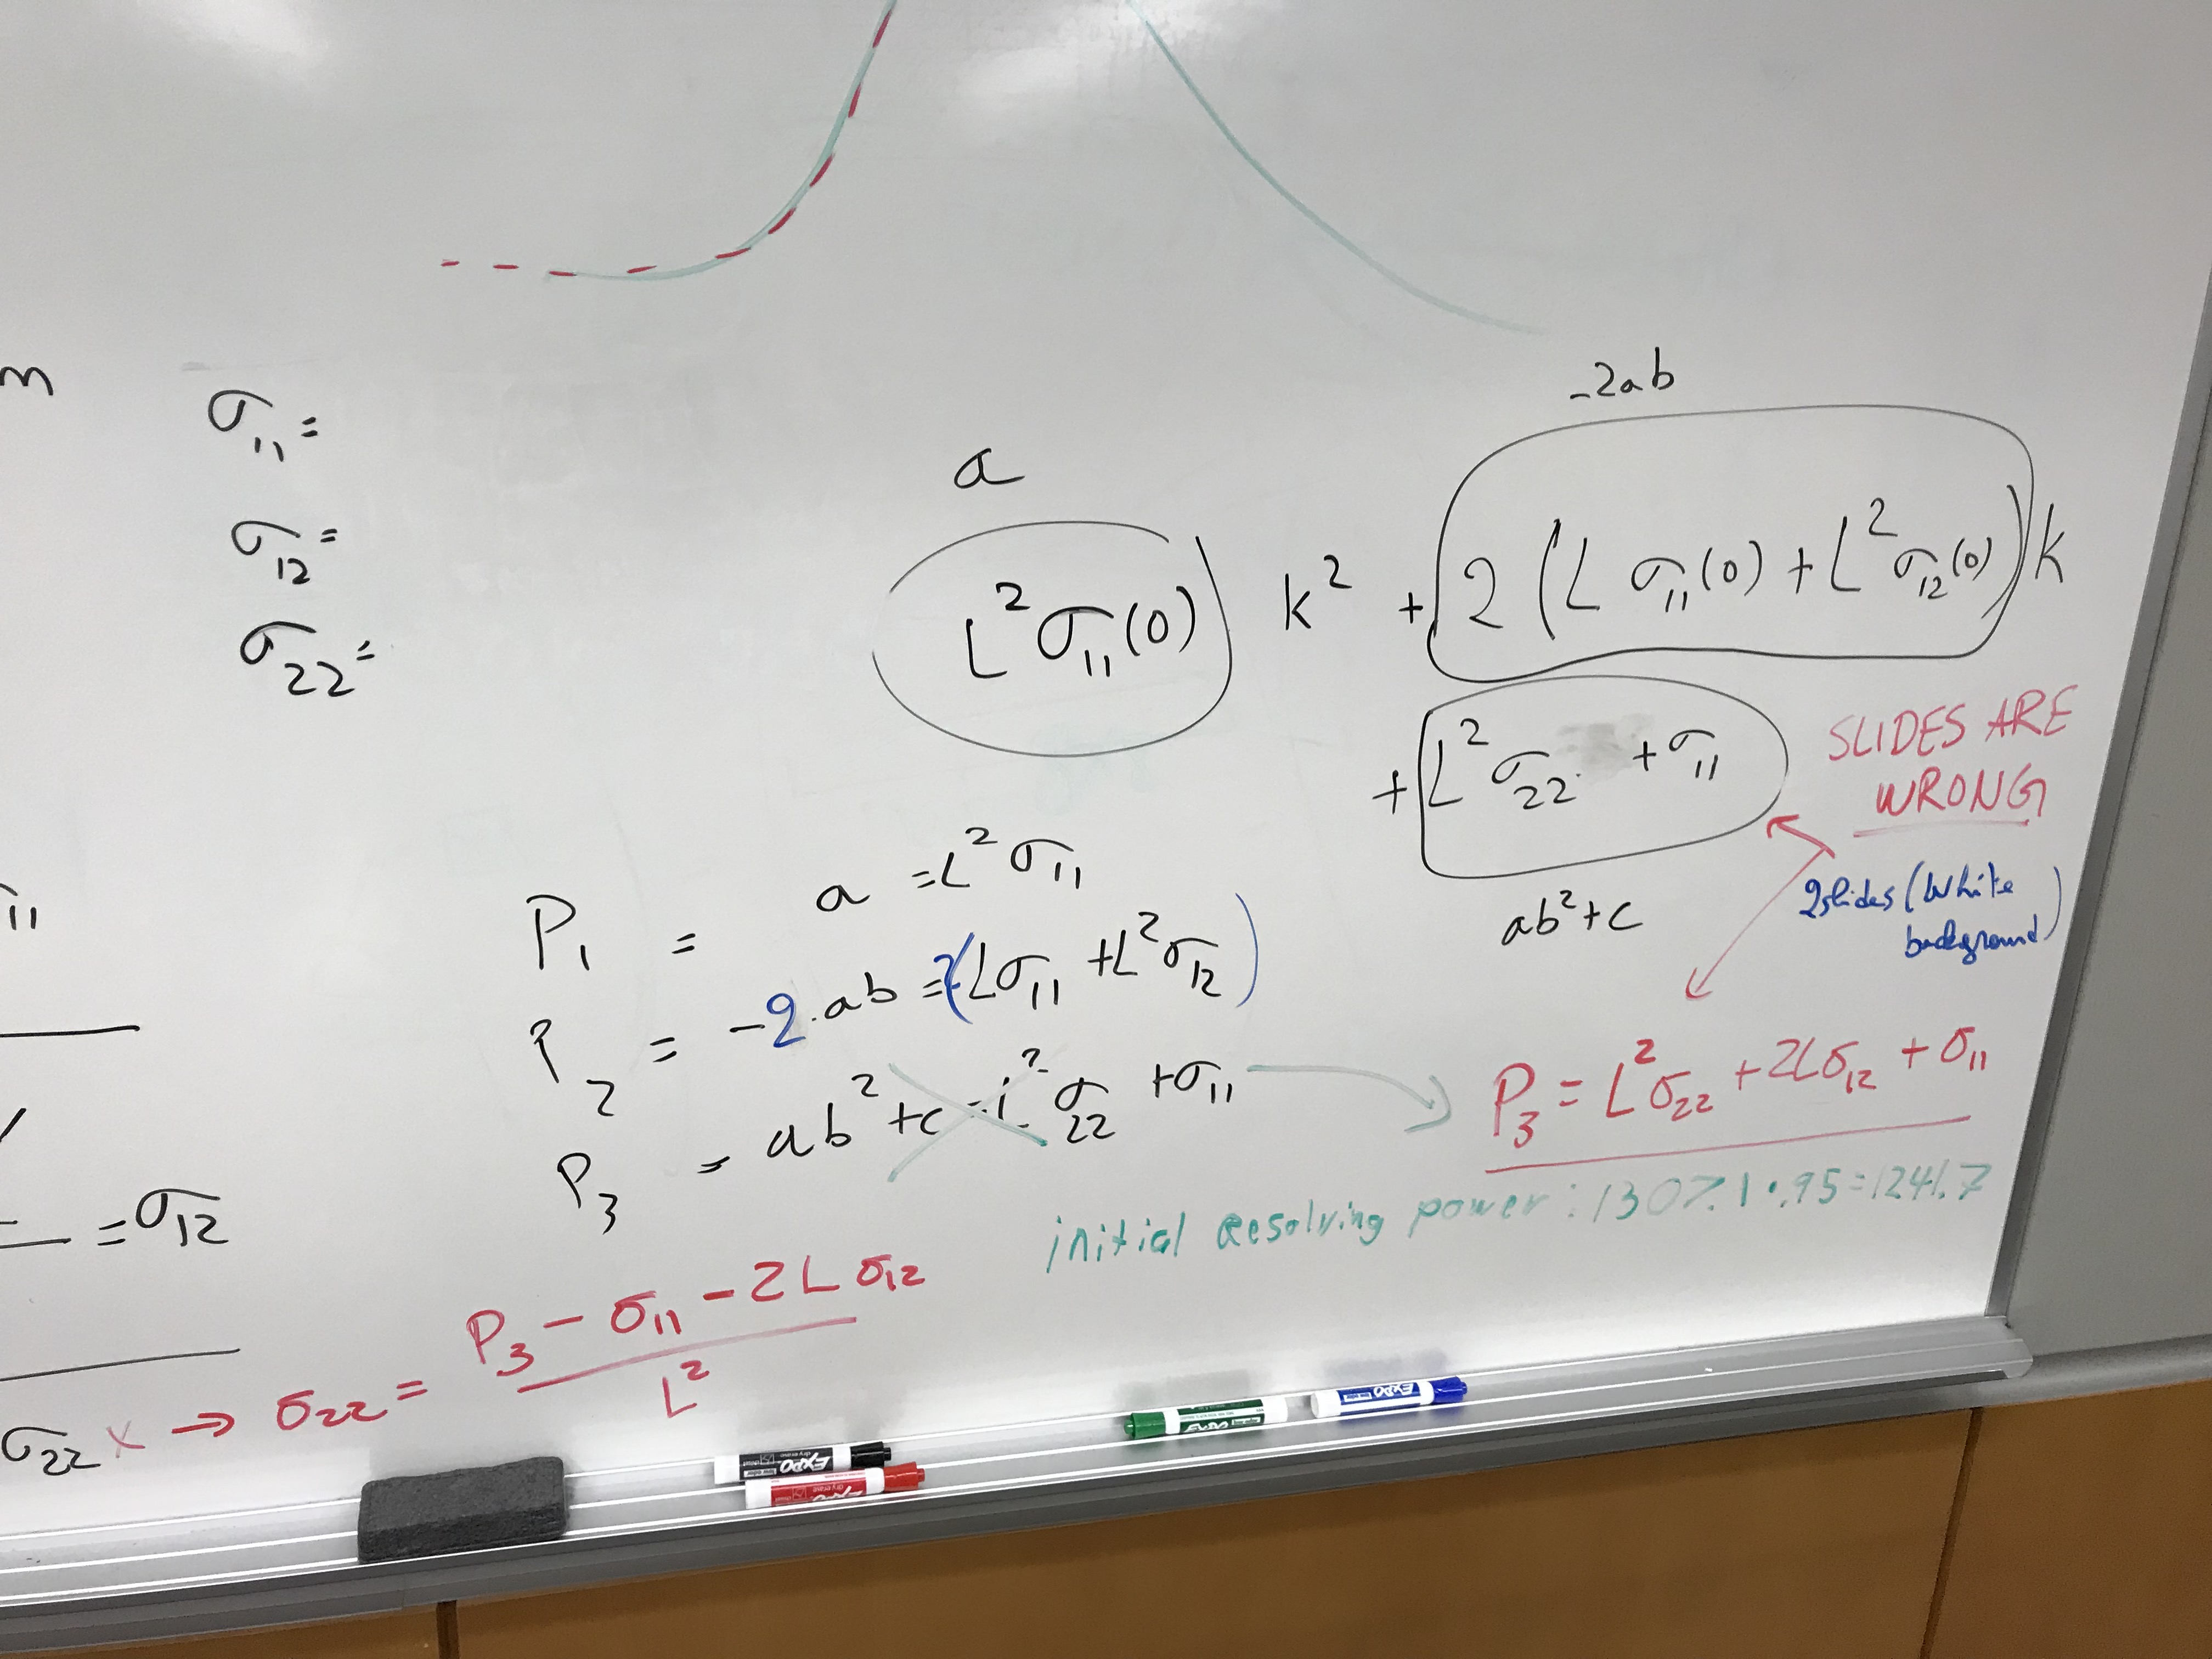 m
σ₁₁ =
σ₁₂ =
σ₂₂ =
a
-2ab
L²σ₁₁(0) k² + 2(Lσ₁₁(0) + L²σ₁₂(0))k
+ L²σ₂₂ + σ₁₁
ab²+c
SLIDES ARE
WRONG
2slides (White
background)
σ₁₁
P₁ = a = L²σ₁₁
P₂ = -2.ab = 2(Lσ₁₁ + L²σ₁₂)
P₃ = ab²+c = L²σ₂₂ + σ₁₁
P₃ = L²σ₂₂ + 2Lσ₁₂ + σ₁₁
initial resolving power : 1307.1 · .95 = 1241.7
= σ₁₂
σ₂₂ x → σ₂₂ = (P₃ - σ₁₁ - 2Lσ₁₂) / L²
EXPO
EXPO
EXPO
EXPO